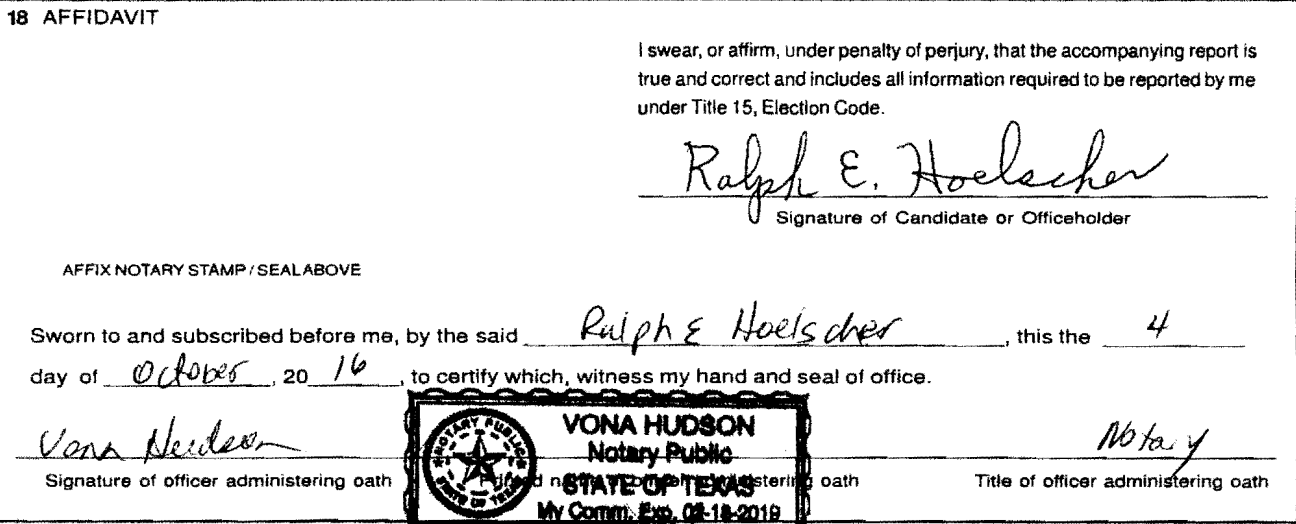 18 AFFIDAVIT
I swear, or affirm, under penalty of perjury, that the accompanying report is
true and correct and includes all information required to be reported by me
under Title 15, Election Code.
Ralph E. Hoelscher
Signature of Candidate or Officeholder
AFFIX NOTARY STAMP / SEAL ABOVE
Sworn to and subscribed before me, by the said Ralph E Hoelscher, this the 4
day of October, 20 16, to certify which, witness my hand and seal of office.
Vona Hudson Notary
NOTARY PUBLIC
STATE OF TEXAS
VONA HUDSON
Notary Public
STATE OF TEXAS
My Comm. Exp. 2019
Signature of officer administering oath oath Title of officer administering oath